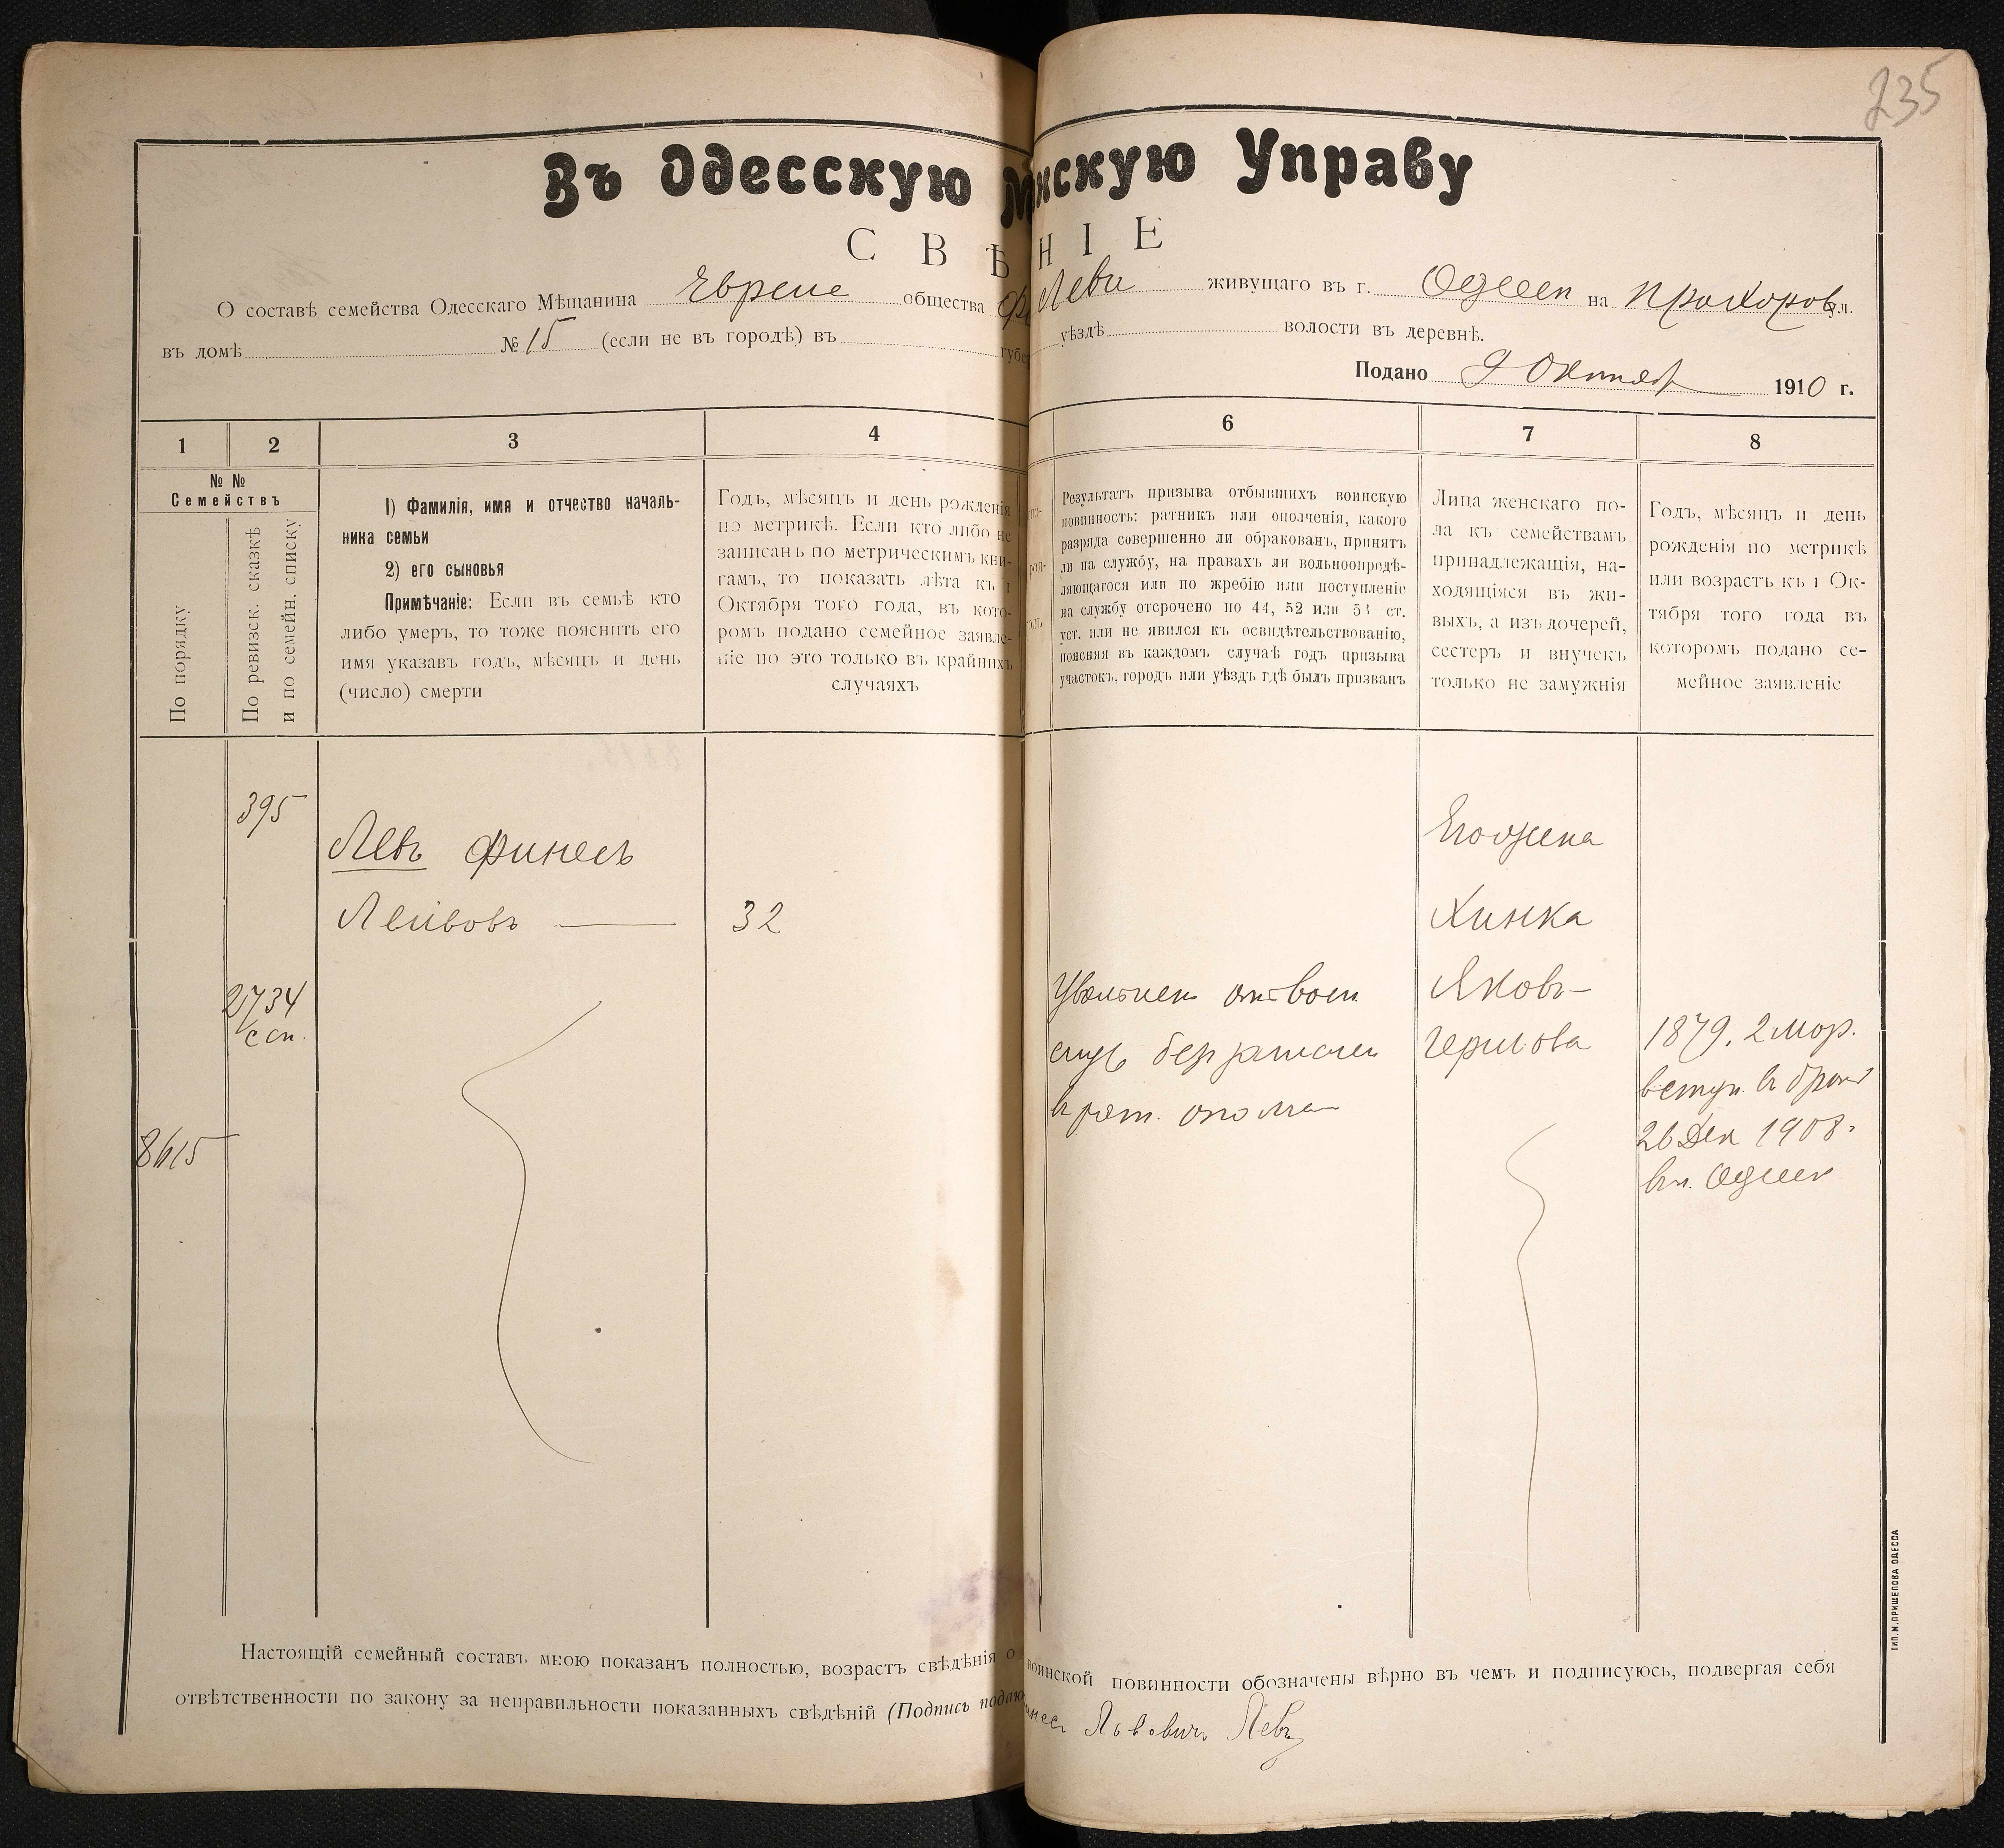 235
Въ Одесскую М нскую Управу
СВѢ НІЕ
О составѣ семейства Одесскаго Мѣщанина Евреие общества Ф Леви живущаго въ г. Одессѣ на Прохоров ул.
въ домѣ № 15 (если не въ городѣ) въ губе уѣздѣ волости въ деревнѣ.
Подано 9 Октября 1910 г.
1 2 3 4 6 7 8
№ №
Семействъ
По порядку
По ревизск. сказкѣ
и по семейн. списку
1) Фамилія, имя и отчество началь-
ника семьи
2) его сыновья
Примѣчаніе: Если въ семьѣ кто
либо умеръ, то тоже пояснить его
имя указавъ годъ, мѣсяцъ и день
(число) смерти
Годъ, мѣсяцъ и день рожденія
по метрикѣ. Если кто либо не
записанъ по метрическимъ кни-
гамъ, то показать лѣта къ 1
Октября того года, въ кото-
ромъ подано семейное заявле-
ніе но это только въ крайнихъ
случаяхъ
Результатъ призыва отбывшихъ воинскую
повинность: ратникъ или ополченія, какого
разряда совершенно ли обракованъ, принятъ
ли на службу, на правахъ ли вольноопредѣ-
ляющагося или по жребію или поступленіе
на службу отсрочено по 44, 52 или 53 ст.
уст. или не явился къ освидѣтельствованію,
поясняя въ каждомъ случаѣ годъ призыва
участокъ, городъ или уѣздъ гдѣ былъ призванъ
Лица женскаго по-
ла къ семействамъ
принадлежащія, на-
ходящіяся въ жи-
выхъ, а изъ дочерей,
сестеръ и внучекъ
только не замужнія
Годъ, мѣсяцъ и день
рожденія по метрикѣ
или возрастъ къ 1 Ок-
тября того года въ
которомъ подано се-
мейное заявленіе
395
Левъ Финесъ
Лейбовъ — 32
2734
с сп.
8615
Уволенъ отъ воен
служ без зачислен
в рат. опол
Его жена
Хинка
Яковъ-
Гершова
1879, 2 мар.
вступ. в брак
26 Дек 1908.
в г. Одессѣ
Настоящій семейный составъ мною показанъ полностью, возрастъ свѣдѣнія о воинской повинности обозначены вѣрно въ чемъ и подписуюсь, подвергая себя
отвѣтственности по закону за неправильности показанныхъ свѣдѣній (Подпись подаю
инесъ Львовичъ Левъ
ТИП. М. ПРИЩЕПОВА ОДЕССА